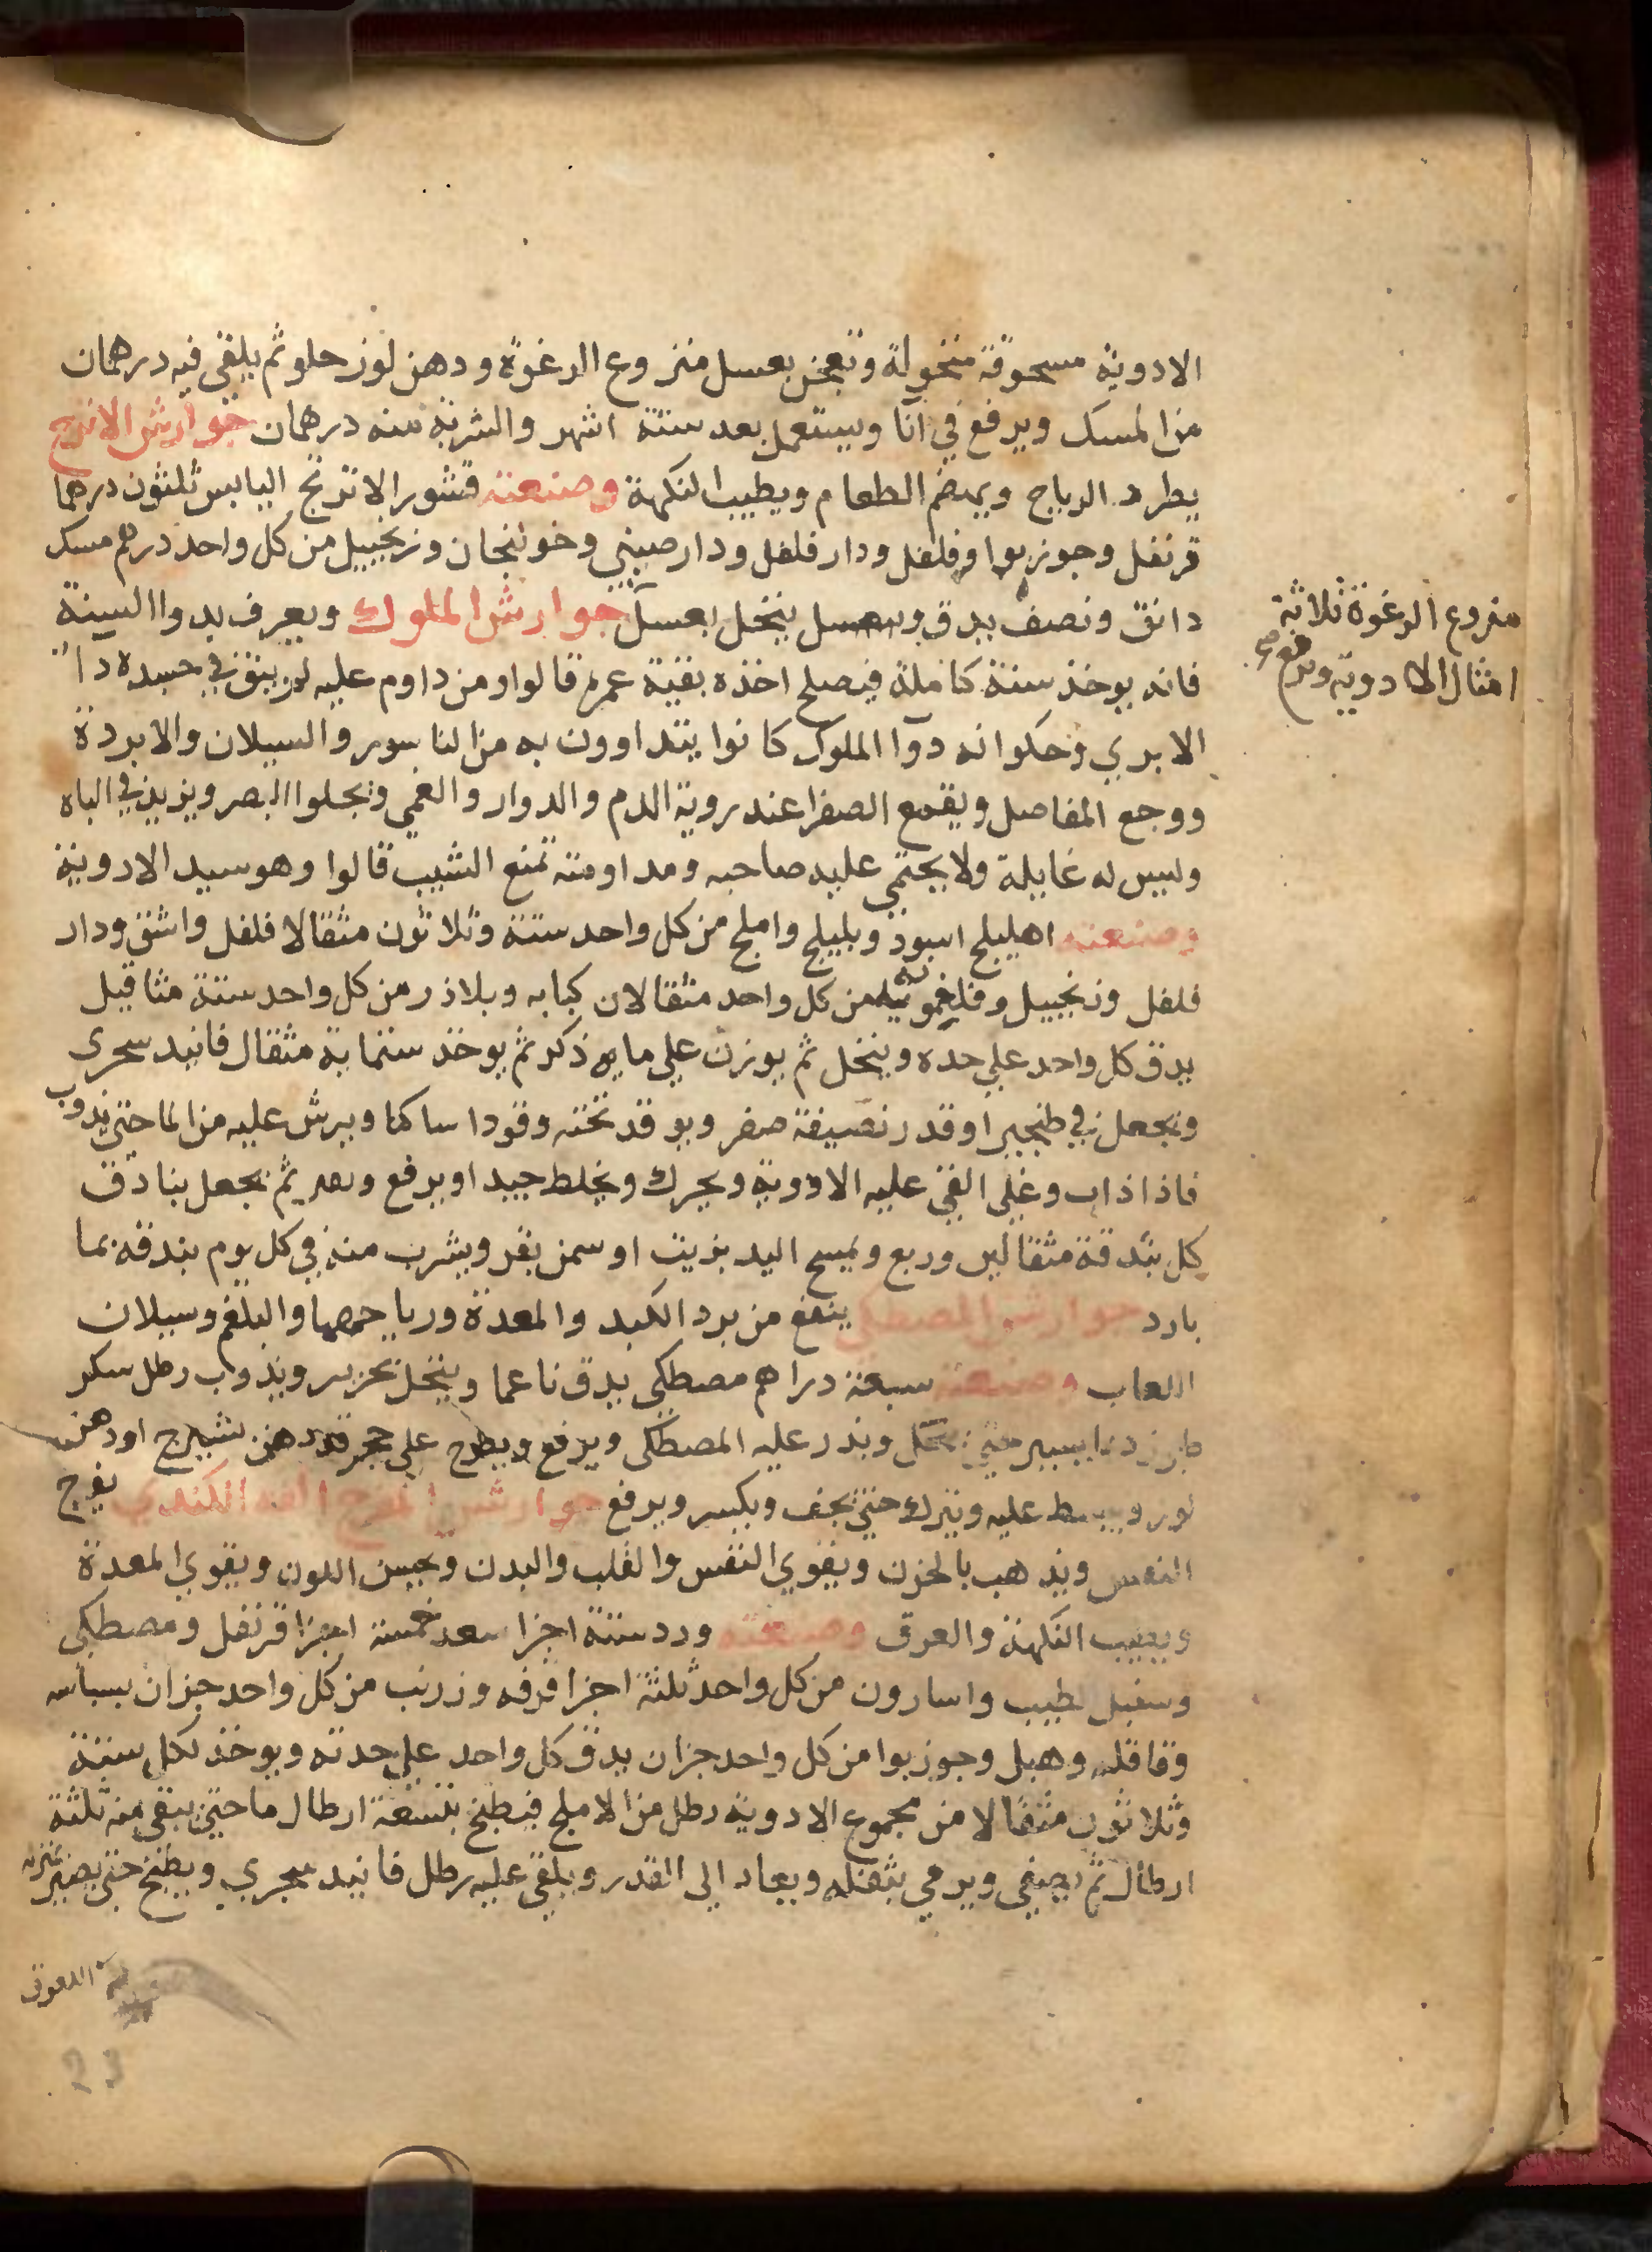 الادوية مسحوقة منخولة وتعجن بعسل منزوع الرغوة ودهن لوز حلو ثم يلقى فيه درهمان
من المسك ويرفع في انا ويستعمل بعد ستة اشهر والشربة منه درهمان جوارش الاترج
يطرد الرياح ويهضم الطعام ويطيب النكهة وصنعته قشور الاترنج اليابس ثلثون درهما
قرنفل وجوزبوا وفلفل ودار فلفل ودار صيني وخولنجان وزنجبيل من كل واحد درهم مسك
دانق ونصف يدق ينخل بعسل جوارش الملوك ويعرف بدوا السنة
فانه يوخذ سنة كاملة فيصلح اخذه بقية عمره قالوا ومن داوم عليه لم يبق في جسده دا
الابري وحكوا انه دوا الملوك كانوا يتداوون به من الناسور والسيلان والابردة
ووجع المفاصل ويقمع الصفرا عند روية الدم والدوار والغمي ويجلوا البصر ويزيد في الباه
وليس له غايلة ولا يحتمي عليه صاحبه ومداومته تمنع الشيب قالوا وهو سيد الادوية
وصنعته اهليلج اسود وبليلج واملج من كل واحد ستة وثلاثون مثقالا فلفل واشق ودار
فلفل وزنجبيل وفلفمونيه من كل واحد مثقالان كبابه وبلاذر من كل واحد ستة مثاقيل
يدق كل واحد علي حده وينخل ثم يوزن علي ما ذكر ثم يوخذ ستماية مثقال فانيد سجرى
ويجعل في طنجير او قدر نظيفة صفر ويوقد تحته وقودا ساكنا ويرش عليه من الما حتى يذوب
فاذا ذاب وغلي القي عليه الادوية ويحرك ويخلط جيدا ويرفع ثم يجعل بنادق
كل بندقة مثقالين وربع ويمسح اليد بزيت او سمن بقر ويشرب منه في كل يوم بندقه بما
بارد جوارش المصطكي ينفع من برد الكبد والمعدة ورياحهما والبلغم وسيلان
اللعاب وصنعته سبعة دراهم مصطكي يدق ناعما وينخل بحرير ويذوب رطل سكر
طبرزد بما يسير حتى ينحل ويذر عليه المصطكي ويرفع ويطرح علي حجر دهن شيرج او دهن
لوز ويبسط عليه ويترك حتى يجف ويكسر ويرفع جوارش المفرح الفه الكندي يفرح
النفس ويذهب بالحزن ويقوي النفس والقلب والبدن ويحسن اللون ويقوي المعدة
ويطيب النكهة والعرق وصنعته ورد ستة اجزا سعد خمسة اجزا قرنفل ومصطكي
وسنبل الطيب واسارون من كل واحد ثلثة اجزا قرفه وزرنب من كل واحد جزان بسباسه
وقاقله وهيل وجوزبوا من كل واحد جزان يدق كل واحد علي حدته ويوخذ لكل ستة
وثلاثون مثقالا من مجموع الادوية رطل من الاملج فيطبخ بتسعة ارطال ما حتى يبقى منه ثلثة
ارطال ثم يصفى ويرمي بثفله ويعاد الي القدر ويلقى عليه رطل فانيد سجري ويطبخ حتى يصير بمنزلة
اللعوق
منزوع الرغوة ثلاثة
امثال الادوية ويرفع صح
23